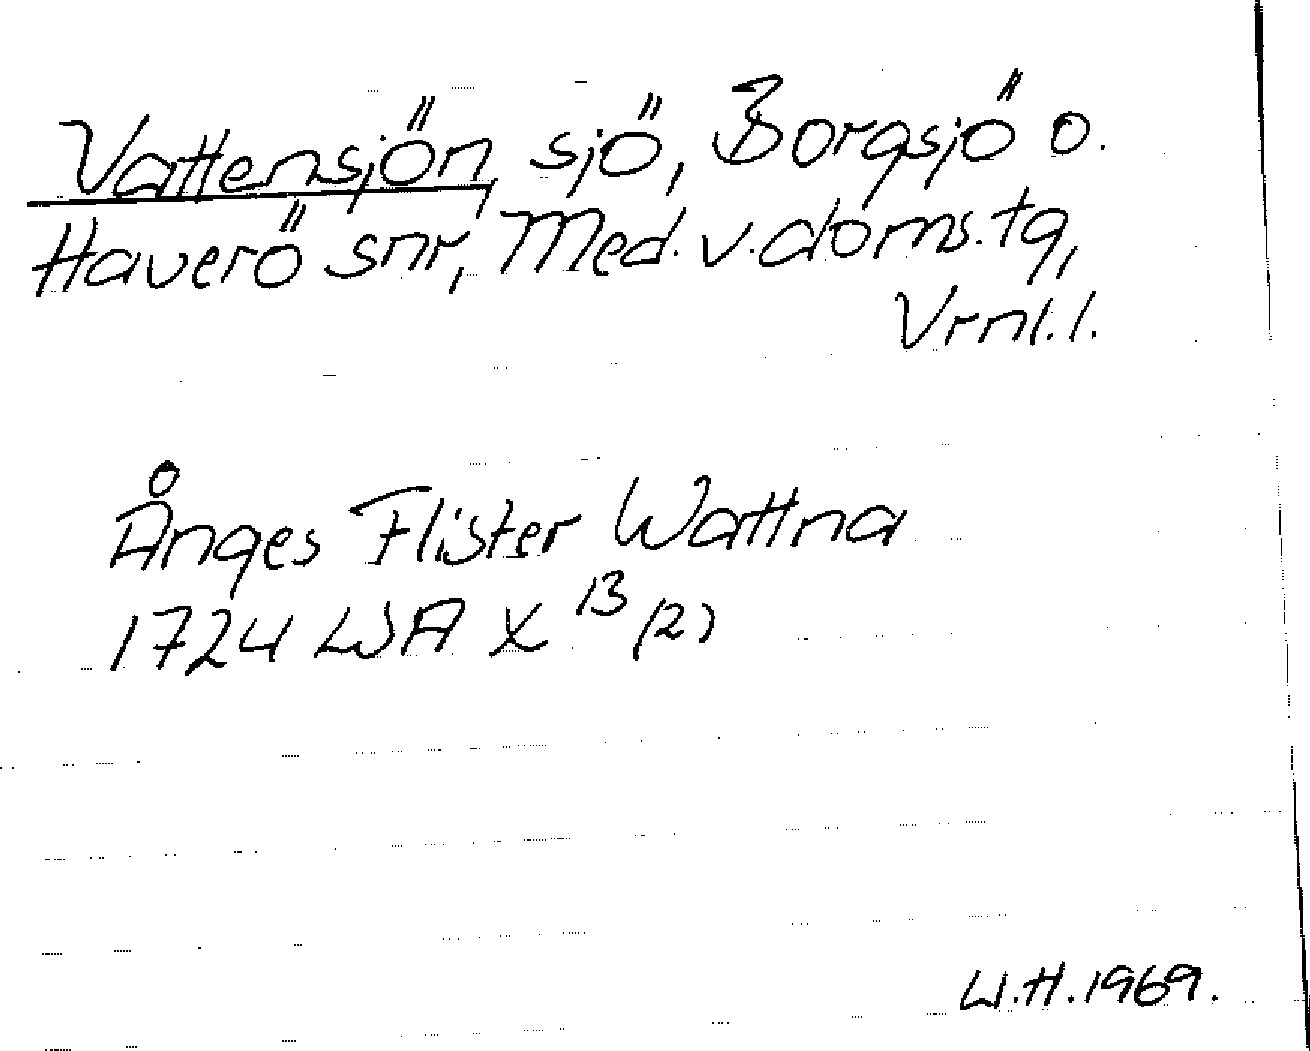 Vattensjön, sjö, Borgsjö o.
Haverö snr, Med. v. doms. tg,
Vrnl. l.
Ånges Flister Wattna
1724 LSA X 13 (2)
W.H. 1969.